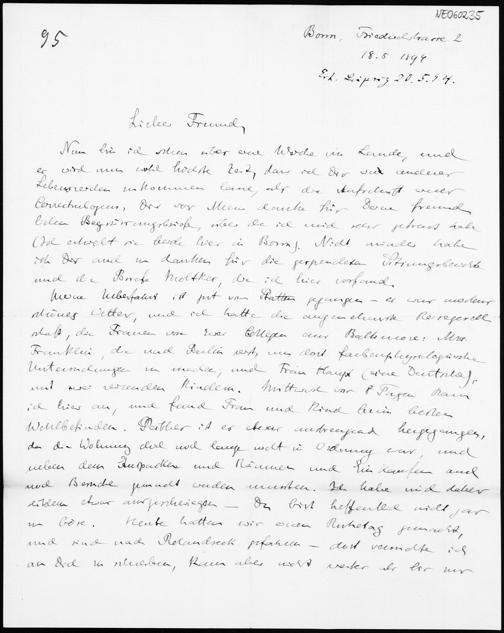 NE060235
95
Bonn, Friedrichstrasse 2
18.5.1894
Erh. Leipzig 20.5.94.
Lieber Freund,
Nun bin ich schon über eine Woche im Lande, und
es wird nun wohl höchste Zeit, dass ich Dir ein anderes
Lebenszeichen zukommen lasse, als die Aufschrift einer
Dir vor Allem danke für Deine freund-
lichen Begrüssungsbriefe, über die ich mich sehr gefreut habe
(Ich erhielt sie beide hier in Bonn). Nicht minder habe
ich Dir auch zu danken für die gespendeten Sitzungsberichte
und die Briefe die ich hier vorfand.
Meine Ueberfahrt ist gut von Statten gegangen – es war
schönes Wetter, und ich hatte die angenehmste Reisegesell-
schaft, die Frauen von zwei Collegen aus Baltimore: Mrs.
Franklin, die nach Berlin reist, um dort farbenphysiologische
Untersuchungen zu machen, und Frau Haupt (eine Deutsche),
mit zwei reizenden Kindern. Mittwoch vor 8 Tagen kam
ich hier an, und fand Frau und Kind beim besten
Wohlbefinden. Seither ist es etwas anstrengend hergegangen,
da die Wohnung doch noch lange nicht in Ordnung war, und
neben dem Auspacken und Räumen und Einkaufen auch
noch Besuche gemacht werden mussten. Ich habe mich daher
seitdem etwas ausgeschwiegen – Du bist hoffentlich nicht gar
zu böse. Heute hatten wir einen Ruhetag gemacht,
und sind nach Rolandseck gefahren – dort versuchte ich
an Dich zu schreiben, kam aber nicht weiter als bis zur